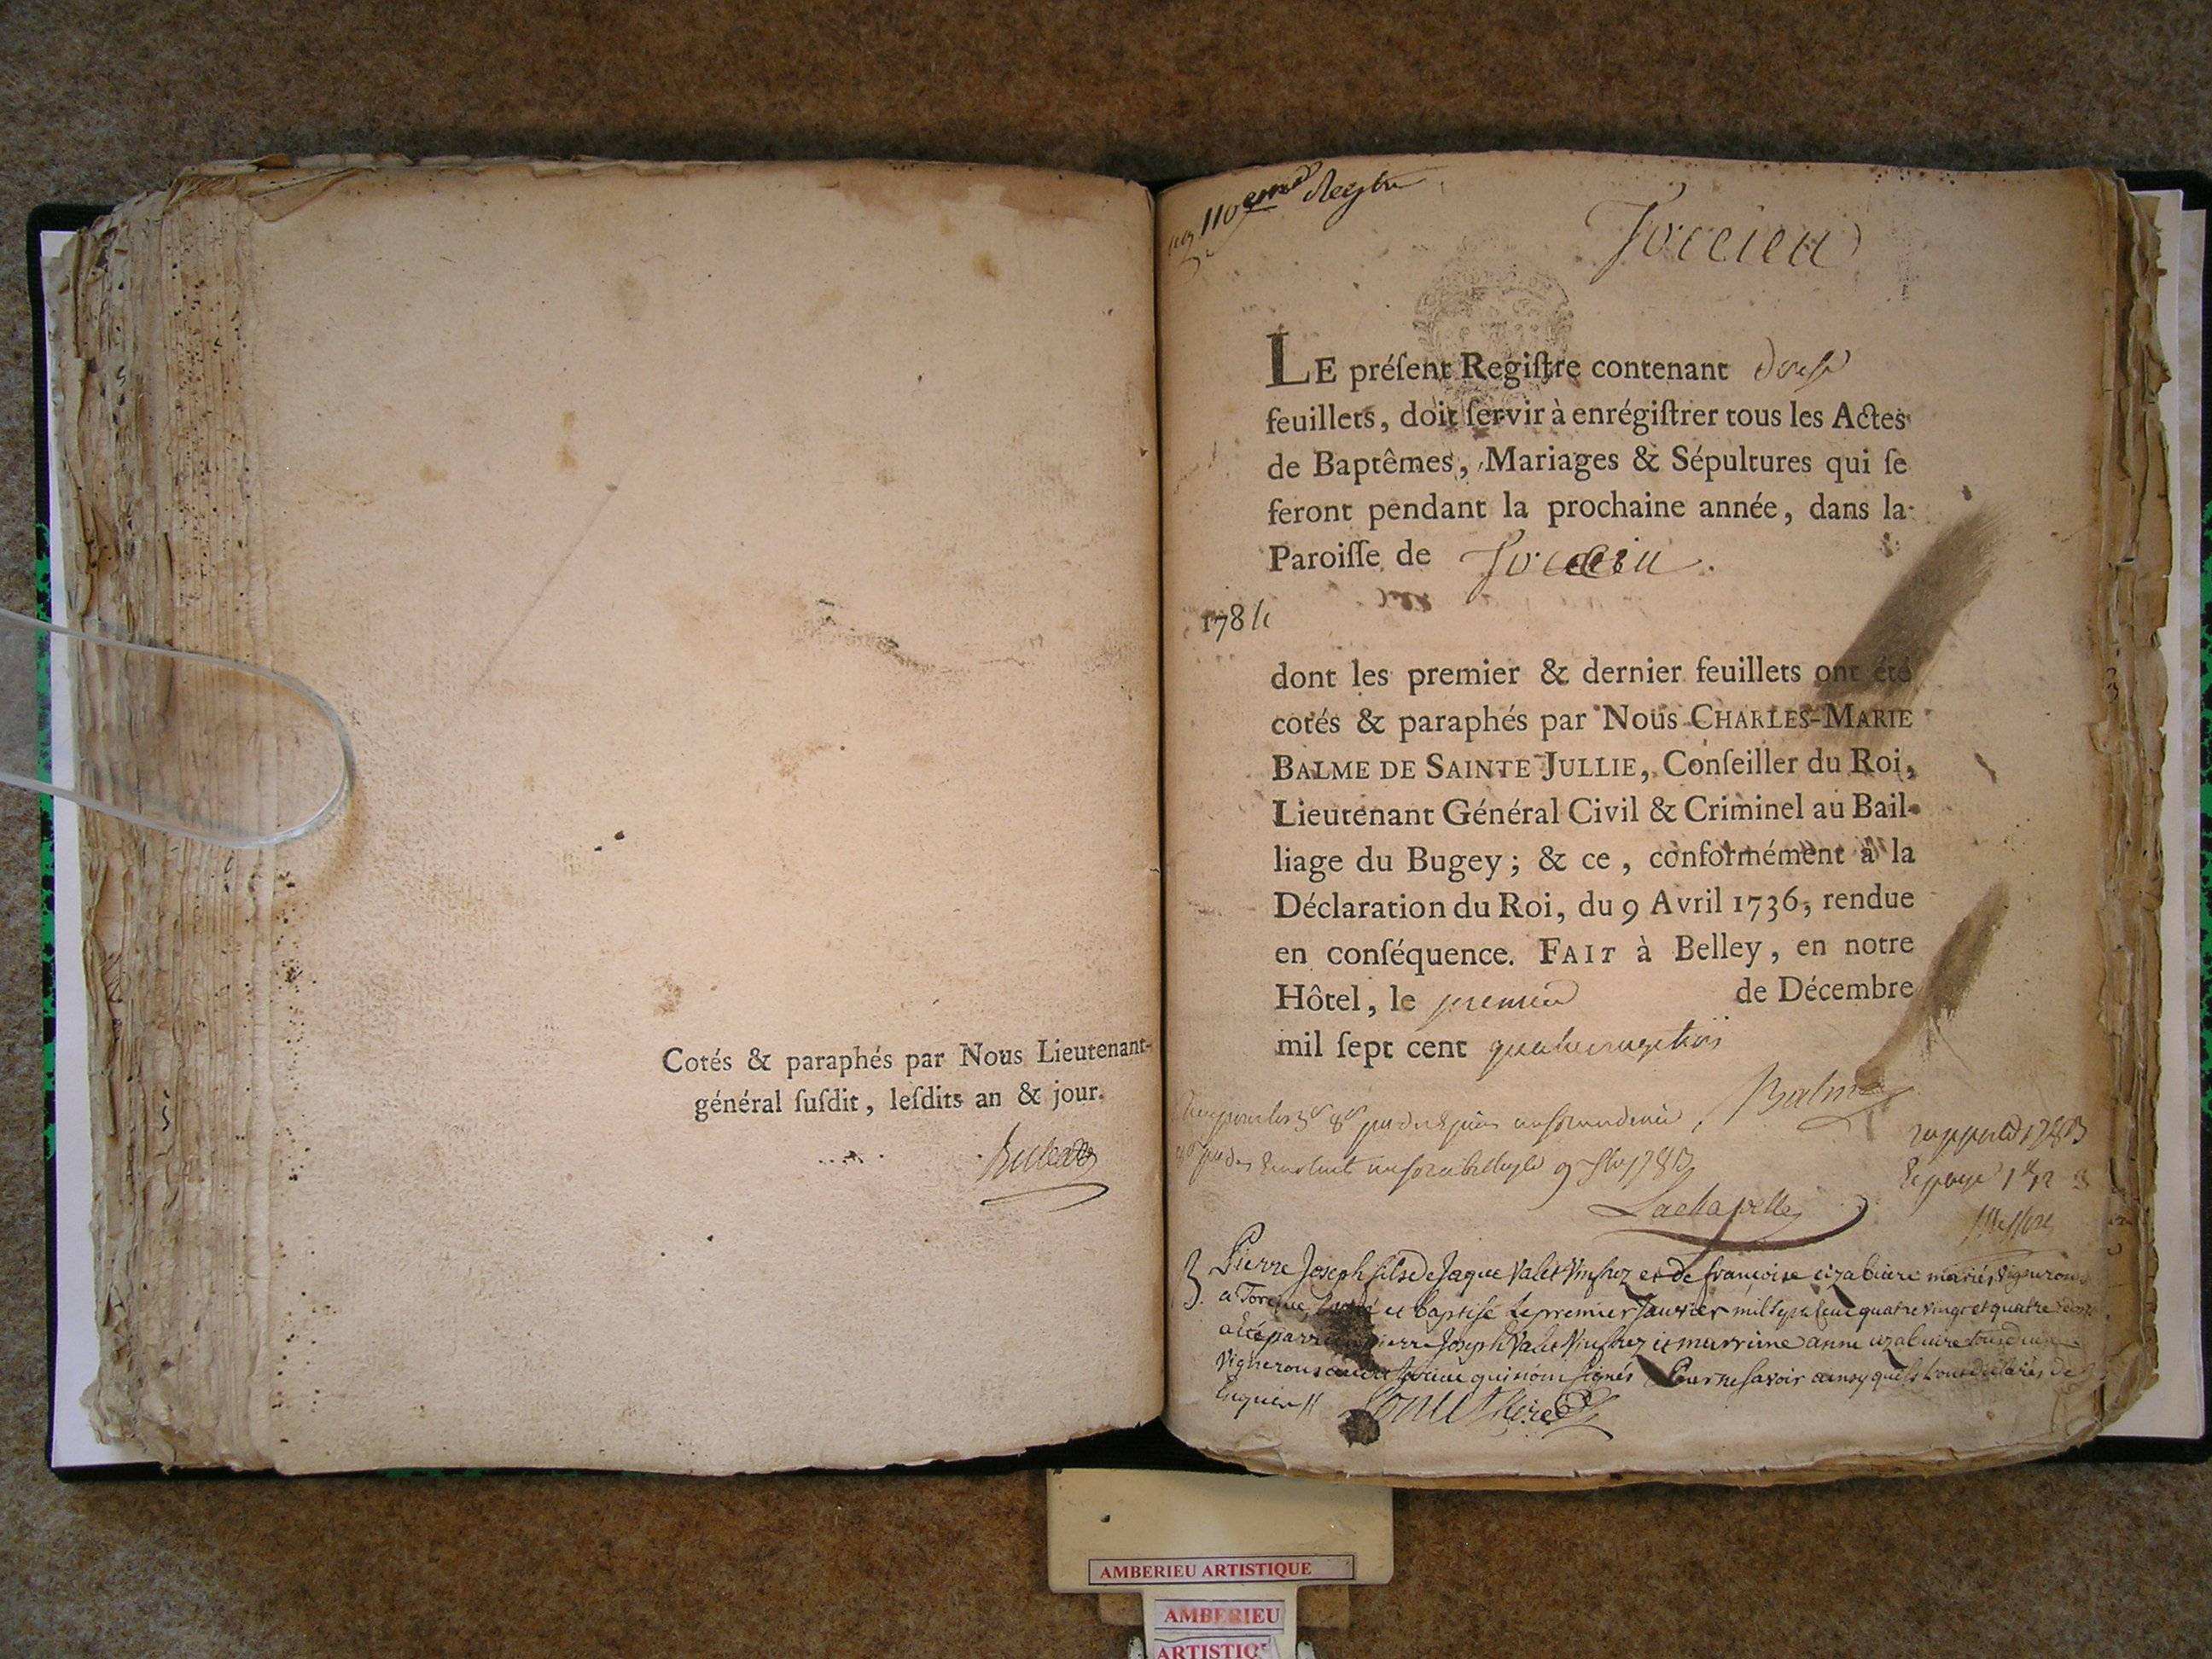 Cotés & paraphés par Nous Lieutenant-
général ſuſdit, leſdits an & jour.
110eme Regtre
Torcieu
LE préſent Regiſtre contenant douſe
feuillets, doit ſervir à enrégiſtrer tous les Actes
de Baptêmes, Mariages & Sépultures qui ſe
feront pendant la prochaine année, dans la
Paroiſſe de Torcieu.
1784
dont les premier & dernier feuillets ont été
cotés & paraphés par Nous CHARLES-MARIE
BALME DE SAINTE JULLIE, Conſeiller du Roi,
Lieutenant Général Civil & Criminel au Bail-
liage du Bugey; & ce, conformément à la
Déclaration du Roi, du 9 Avril 1736, rendue
en conſéquence. FAIT à Belley, en notre
Hôtel, le premier de Décembre
mil ſept cent quatrevingt trois
Balme
Lachapelle
Pierre Joseph fils de Jaque Valet Vinfrez et de francoise mariés vignerons
a Torcieu et baptisé le premier Janvier mil sept cent quatre vingt et quatre
a été parrain pierre Joseph Valet Vinfrez et marrine anne
Vignerons qui nom signés pour ne savoir ainsy
enquis //
AMBERIEU ARTISTIQUE
AMBERIEU
ARTISTIQUE